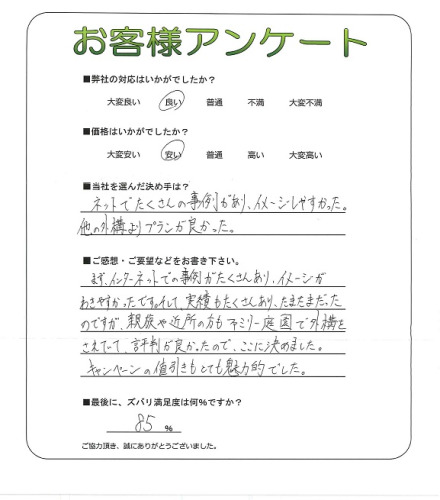 お客様アンケート
■弊社の対応はいかがでしたか？
大変良い 良い 普通 不満 大変不満
■価格はいかがでしたか？
大変安い 安い 普通 高い 大変高い
■当社を選んだ決め手は？
ネットでたくさんの事例があり、イメージしやすかった。
他の外構よりプランが良かった。
■ご感想・ご要望などをお書き下さい。
まず、インターネットでの事例がたくさんあり、イメージが
わきやすかったです。そして、実績もたくさんあり、たまたまだった
のですが、親族や近所の方もファミリー庭園で外構を
されていて、評判が良かったので、ここに決めました。
キャンペーンの値引きもとても魅力的でした。
■最後に、ズバリ満足度は何％ですか？
85 ％
ご協力頂き、誠にありがとうございました。